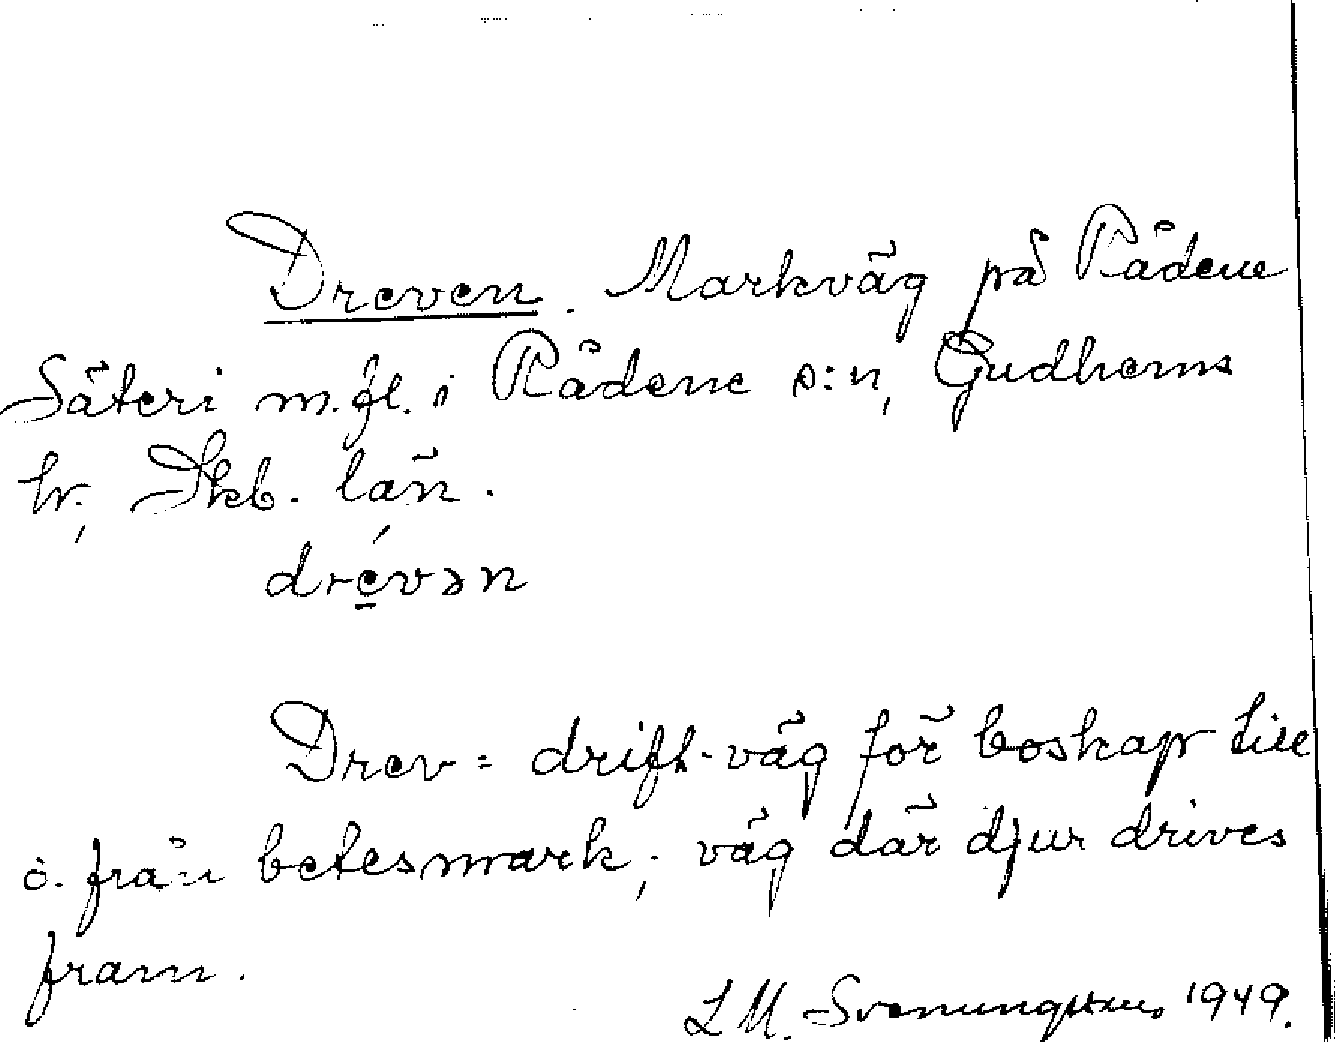 Dreven. Markväg på Rådene
Säteri m.fl. i Rådene s:n, Gudhems
hr, Skb. län.
drévən
Drev = drift-väg för boskap till
o. från betesmark; väg där djur drives
fram.
L M. Svenungsson 1949.